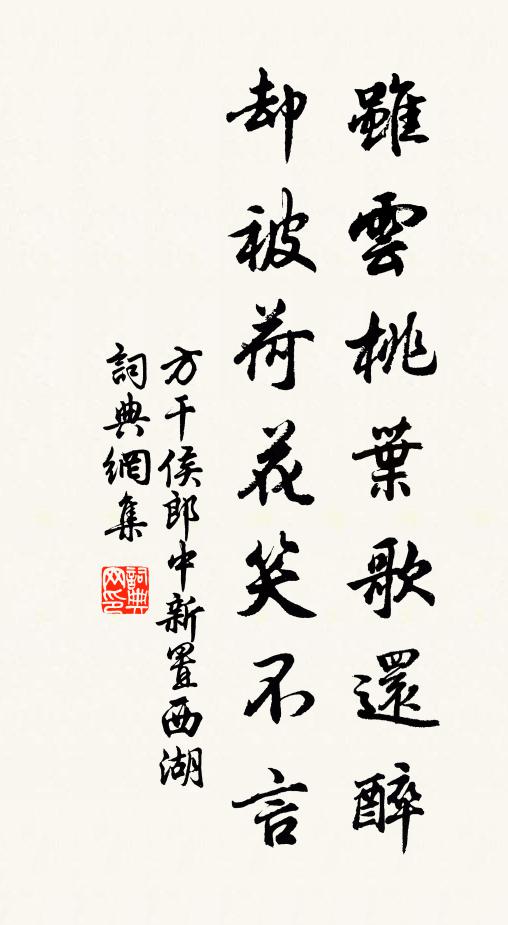 雖雲桃葉歌還醉
却被荷花笑不言
方干侯郎中新置西湖
詞典網集
詞典網印